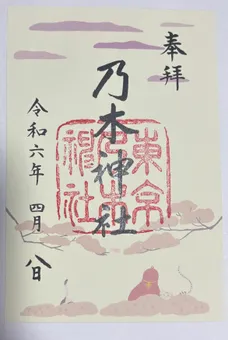 奉拝
乃木神社
令和六年 四月 八日
東京
乃木
神社